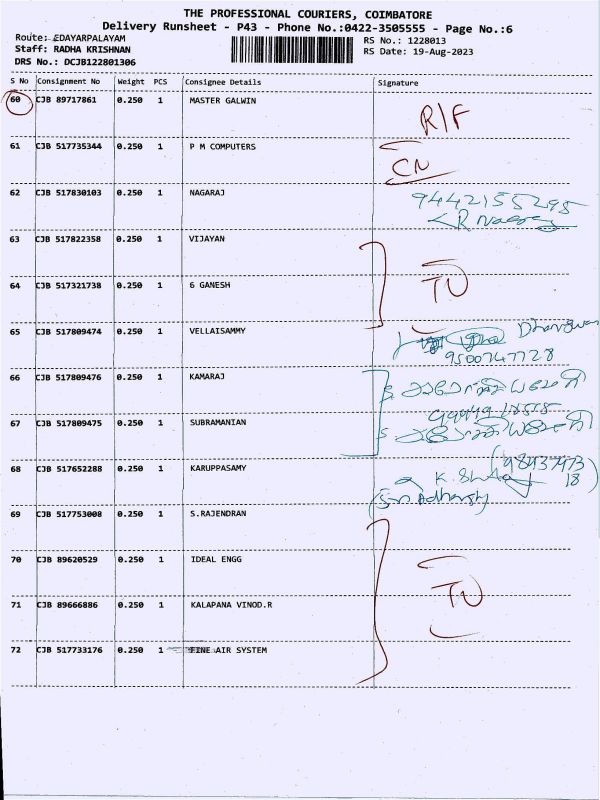 THE PROFESSIONAL COURIERS, COIMBATORE
Delivery Runsheet - P43 - Phone No.:0422-3505555 - Page No.:6
Route: EDAYARPALAYAM
RS No.: 1228013
Staff: RADHA KRISHNAN
RS Date: 19-Aug-2023
DRS No.: DCJB122801306
S No Consignment No Weight PCS Consignee Details Signature
60 CJB 89717861 0.250 1 MASTER GALWIN R/F
61 CJB 517735344 0.250 1 P M COMPUTERS CN
62 CJB 517830103 0.250 1 NAGARAJ 9442155295
63 CJB 517822358 0.250 1 VIJAYAN
64 CJB 517321738 0.250 1 6 GANESH
65 CJB 517809474 0.250 1 VELLAISAMMY
9500747728
66 CJB 517809476 0.250 1 KAMARAJ
67 CJB 517809475 0.250 1 SUBRAMANIAN
68 CJB 517652288 0.250 1 KARUPPASAMY
69 CJB 517753008 0.250 1 S.RAJENDRAN
70 CJB 89620529 0.250 1 IDEAL ENGG
71 CJB 89666886 0.250 1 KALAPANA VINOD.R
72 CJB 517733176 0.250 1 FINE AIR SYSTEM